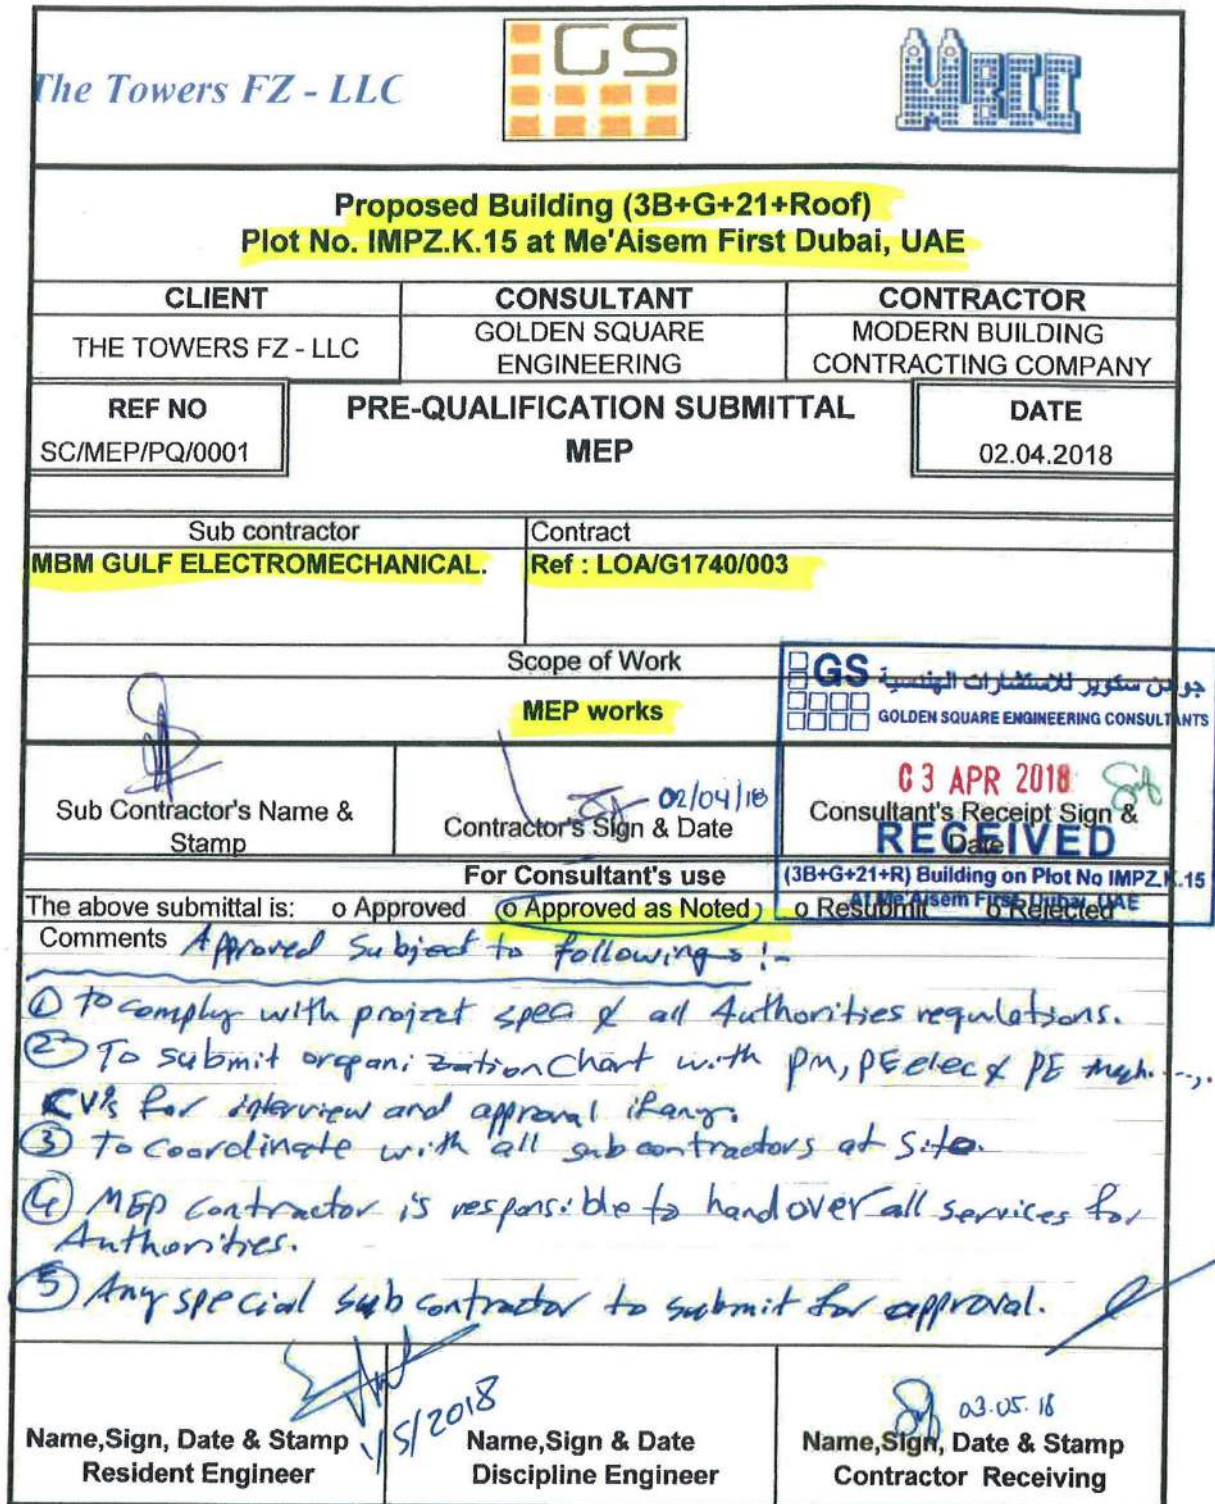 The Towers FZ - LLC
GS
MBCC
Proposed Building (3B+G+21+Roof)
Plot No. IMPZ.K.15 at Me'Aisem First Dubai, UAE
CLIENT CONSULTANT CONTRACTOR
THE TOWERS FZ - LLC
GOLDEN SQUARE
ENGINEERING
MODERN BUILDING
CONTRACTING COMPANY
REF NO
SC/MEP/PQ/0001
PRE-QUALIFICATION SUBMITTAL
MEP
DATE
02.04.2018
Sub contractor Contract
MBM GULF ELECTROMECHANICAL. Ref : LOA/G1740/003
Scope of Work
MEP works
GS
سكوير للاستشارات الهندسية
GOLDEN SQUARE ENGINEERING CONSULTANTS
03 APR 2018
RECEIVED
(3B+G+21+R) Building on Plot No IMPZ.K.15
At Me'Aisem First Dubai, UAE
Sub Contractor's Name &
Stamp
02/04/18
Contractor's Sign & Date
Consultant's Receipt Sign &
Date
For Consultant's use
The above submittal is: o Approved o Approved as Noted o Resubmit o Rejected
Comments Approved Subject to followings :-
① to comply with project spec & all Authorities regulations.
② To submit organization Chart with PM, PE elec & PE Mech. --,.
CV's for interview and approval if any.
③ to coordinate with all subcontractors at site.
④ MEP contractor is responsible to handover all services for
Authorities.
⑤ Any special sub contractor to submit for approval.
1/5/2018
03.05.18
Name,Sign, Date & Stamp
Resident Engineer
Name,Sign & Date
Discipline Engineer
Name,Sign, Date & Stamp
Contractor Receiving